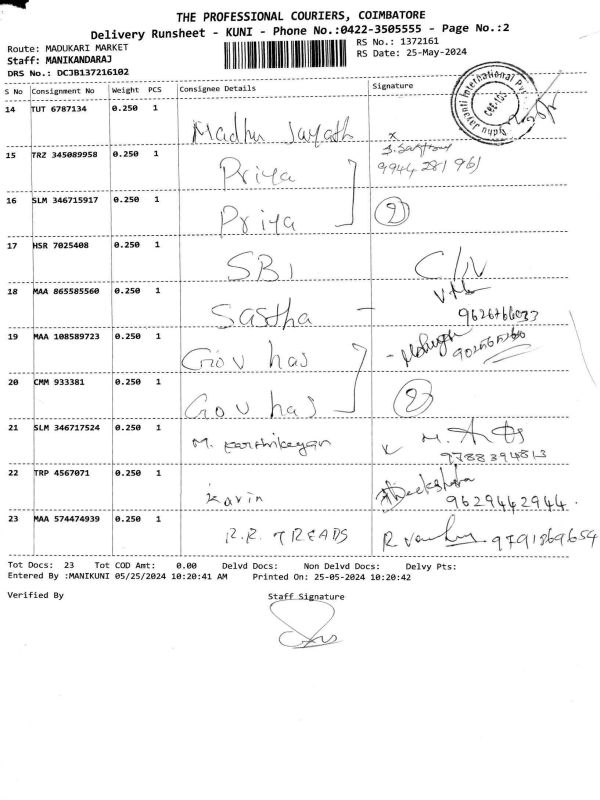 THE PROFESSIONAL COURIERS, COIMBATORE
Delivery Runsheet - KUNI - Phone No.:0422-3505555 - Page No.:2
Route: MADUKARI MARKET
RS No.: 1372161
Staff: MANIKANDARAJ
RS Date: 25-May-2024
DRS No.: DCJB137216102
S No Consignment No Weight PCS Consignee Details Signature
14 TUT 6787134 0.250 1 Madhu Jayath x
15 TRZ 345089958 0.250 1 Priya 9944 281 961
16 SLM 346715917 0.250 1 Priya 2
17 HSR 7025408 0.250 1 SBI
18 MAA 865585560 0.250 1 Sastha -
19 MAA 108589723 0.250 1 Gov has
20 CMM 933381 0.250 1 Gov has 2
21 SLM 346717524 0.250 1 M. Karthikeyan 9788394813
22 TRP 4567071 0.250 1 Kavin 9629442944.
23 MAA 574474939 0.250 1 R.R. TREADS 9791869654
Tot Docs: 23 Tot COD Amt: 0.00 Delvd Docs: Non Delvd Docs: Delvy Pts:
Entered By :MANIKUNI 05/25/2024 10:20:41 AM Printed On: 25-05-2024 10:20:42
Verified By Staff Signature